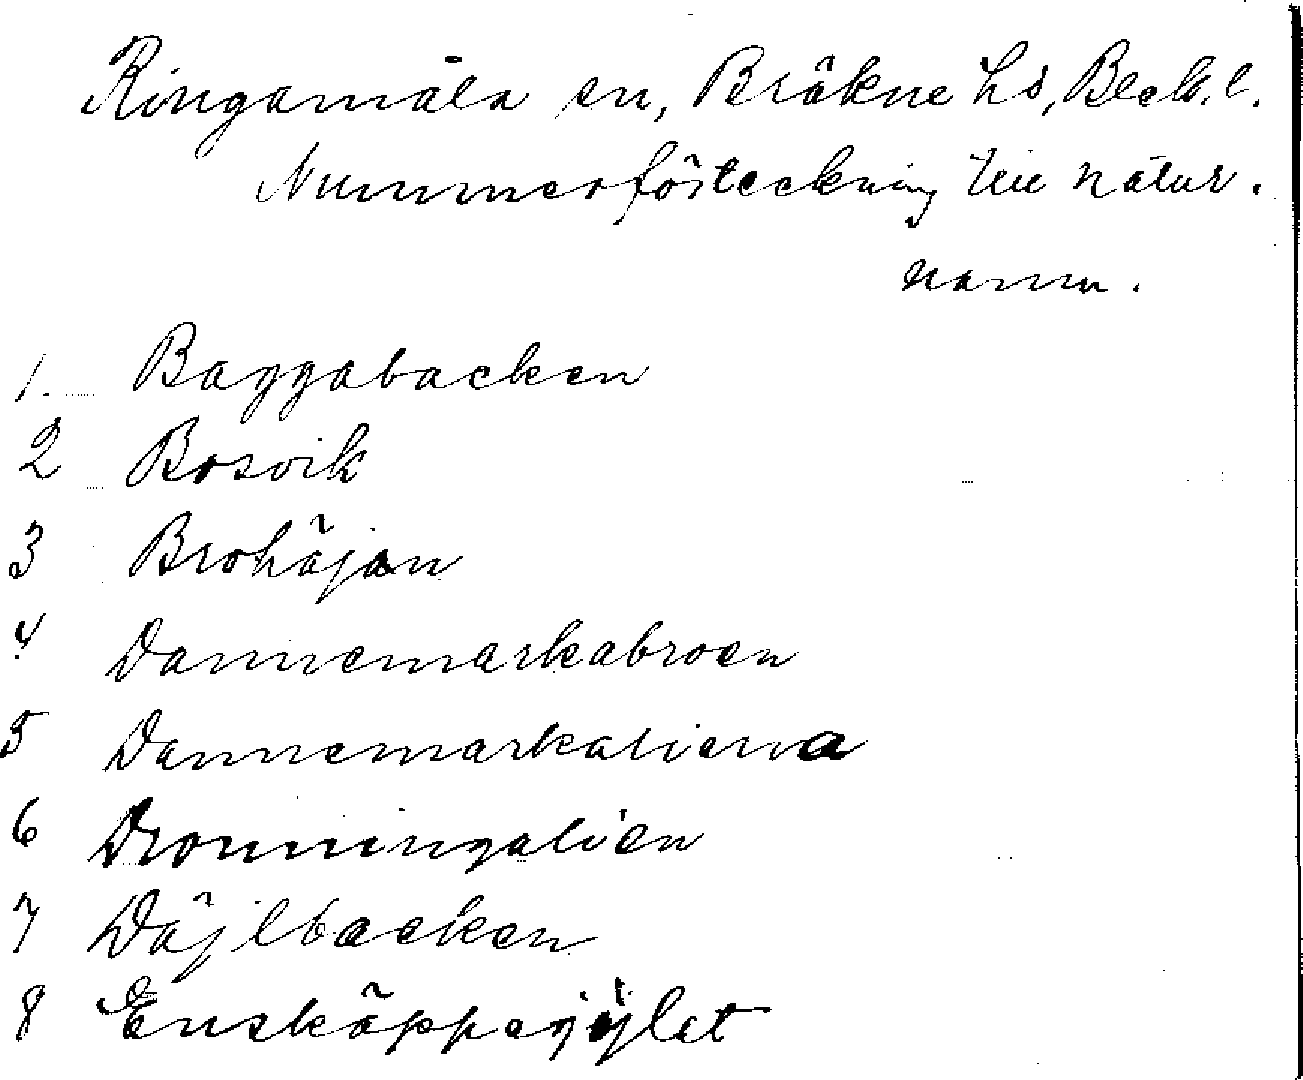 Ringamåla sn, Bräkne hd, Blek. l.
Nummerförteckning till natur-
namn.
1. Baggabacken
2 Bosvik
3 Brohäjan
4 Dannemarkabroen
5 Dannemarkalierna
6 Dronningalien
7 Däjlbacken
8 Enskäppegylet